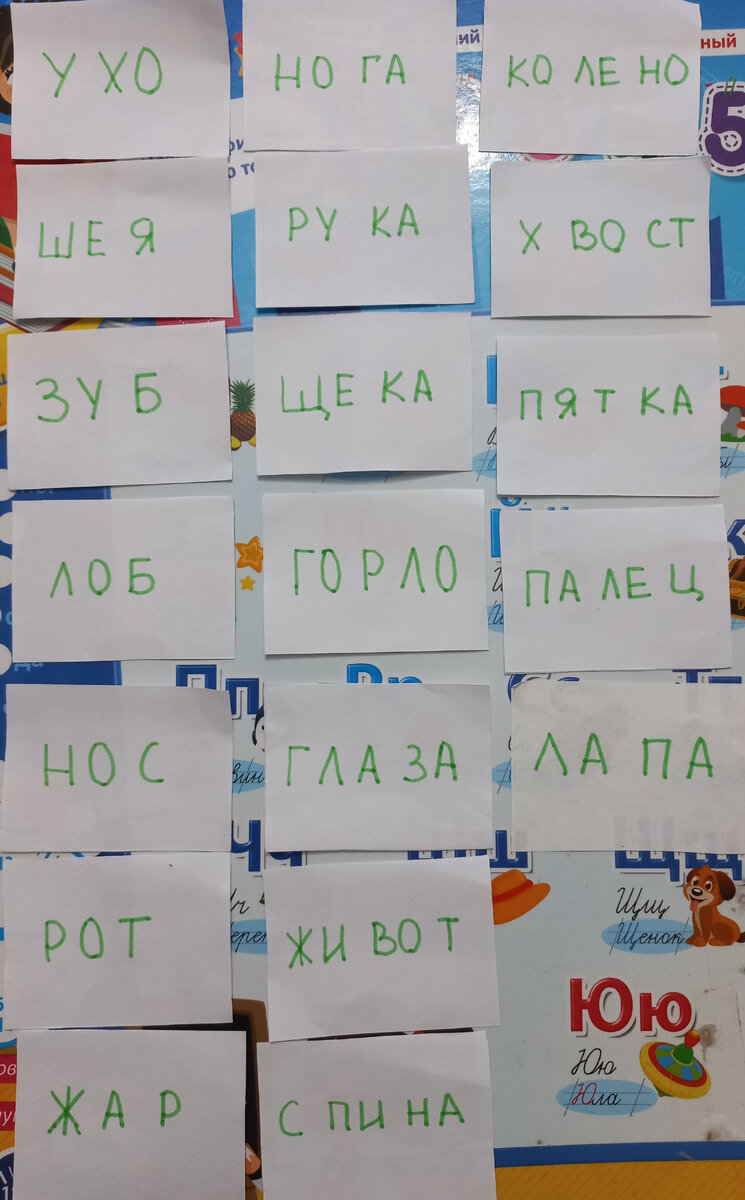 УХО
НОГА
КОЛЕНО
ШЕЯ
РУКА
ХВОСТ
5
ЗУБ
ЩЕКА
ПЯТКА
ЛОБ
ГОРЛО
ПАЛЕЦ
НОС
ГЛАЗА
ЛАПА
РОТ
ЖИВОТ
Щщ
Щенок
ЖАР
СПИНА
Юю
Юю
Юла